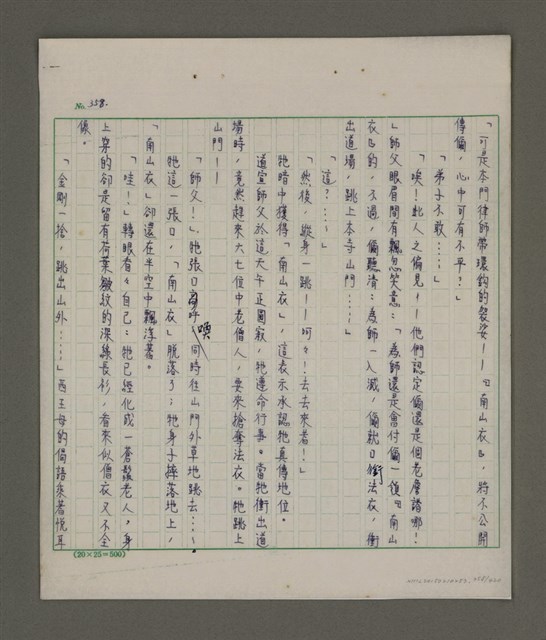 No. 358.
「可是本門律師帶環鈎的袈裟——『南山衣』,將不公開
傳俪,心中可有不平?」
「弟子不敢……」
「唉!此人之偏見——他們認定俪還是個老詹諸哪!
」師父眼眉間有飄忽笑意:「為師還是會付俪一領『南山
衣』的,不過,俪聽清:為師一入滅,俪就口銜法衣,衝
出道場,跳上本寺山門……」
「這?……」
「然後,縱身一跳——呵々!去去來者!」
牠暗中獲得「南山衣」,這表示承認牠真傳地位。
道宣師父於這天午正圓寂,牠遵命行事。當牠衝出道
場時,竟然趕來六七位中老僧人,要來搶奪法衣。牠跳上
山門——
「師父!」,牠張口喚,同時往山門外草地跳去……,
牠這一張口,「南山衣」脫落了;牠身子摔落地上,
「南山衣」卻還在半空中飄浮著。
「哇!」轉眼看々自己:牠已經化成一蒼髮老人,身
上穿的卻是留有荷葉皺紋的深綠長衫,看來似僧衣又不全
像。
「金剛一拾,跳出山外……」西王母的偈語柔著悅耳
(20×25=500)